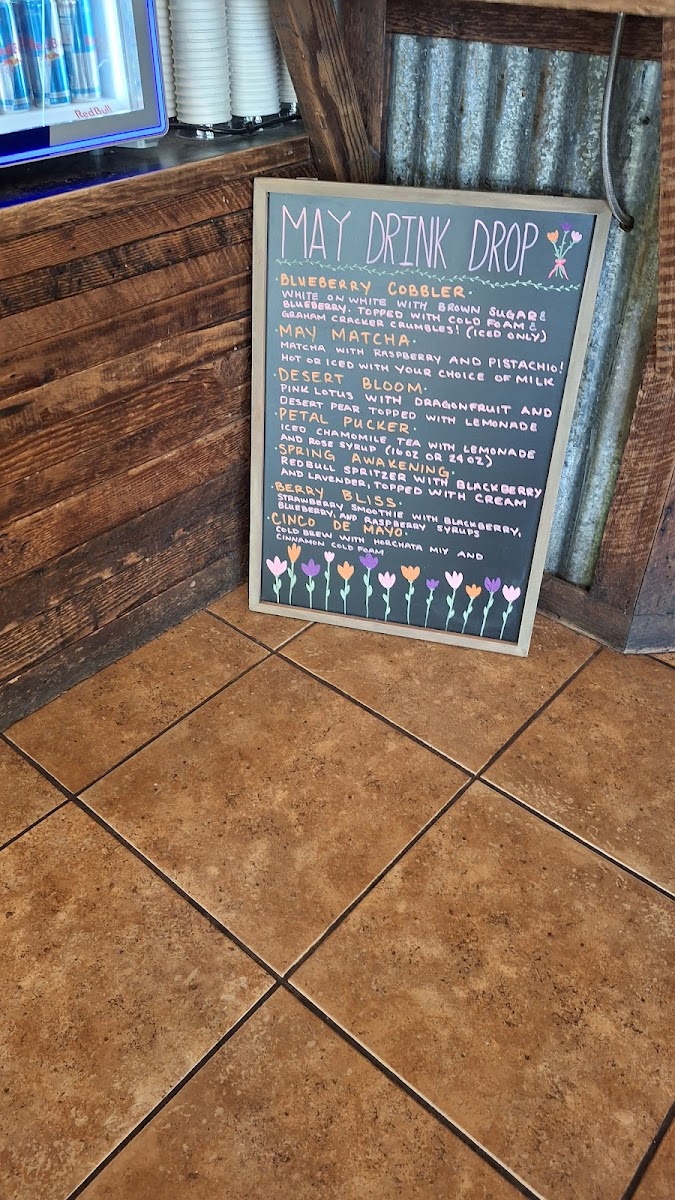 RedBull
MAY DRINK DROP
·BLUEBERRY COBBLER·
WHITE ON WHITE WITH BROWN SUGAR &
BLUEBERRY. TOPPED WITH COLD FOAM &
GRAHAM CRACKER CRUMBLES! (ICED ONLY)
·MAY MATCHA·
MATCHA WITH RASPBERRY AND PISTACHIO!
HOT OR ICED WITH YOUR CHOICE OF MILK
·DESERT BLOOM·
PINK LOTUS WITH DRAGONFRUIT AND
DESERT PEAR TOPPED WITH LEMONADE
·PETAL PUCKER·
ICED CHAMOMILE TEA WITH LEMONADE
AND ROSE SYRUP (16OZ OR 24OZ)
·SPRING AWAKENING·
REDBULL SPRITZER WITH BLACKBERRY
AND LAVENDER, TOPPED WITH CREAM
·BERRY BLISS·
STRAWBERRY SMOOTHIE WITH BLACKBERRY,
BLUEBERRY, AND RASPBERRY SYRUPS
·CINCO DE MAYO·
COLD BREW WITH HORCHATA MIY AND
CINNAMON COLD FOAM